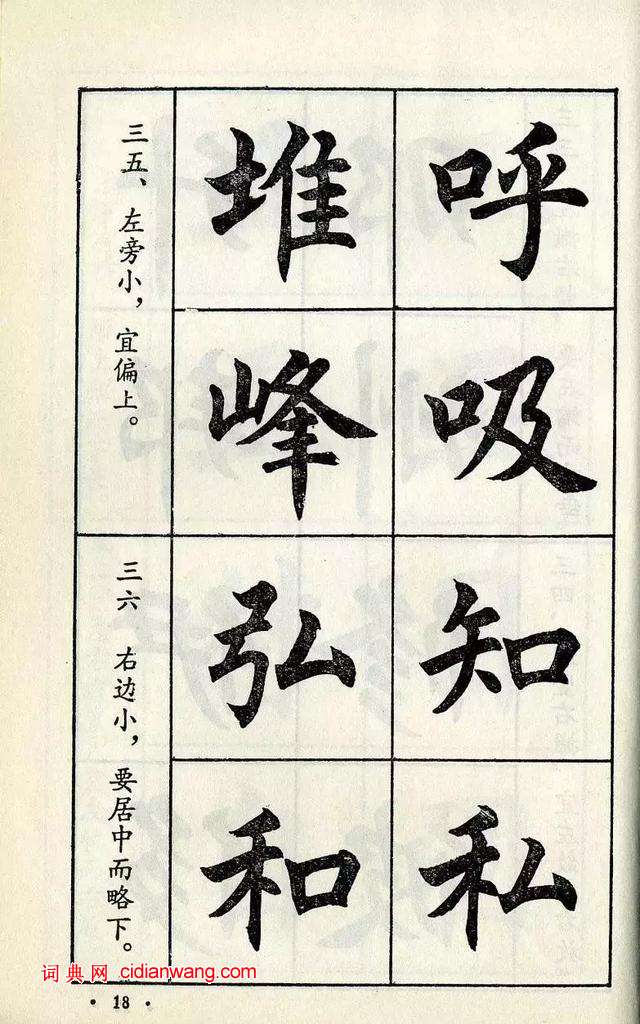 呼吸
堆峰
三五、左旁小，宜偏上。
知私
弘和
三六 右边小，要居中而略下。
词典网 cidianwang.com
· 18 ·